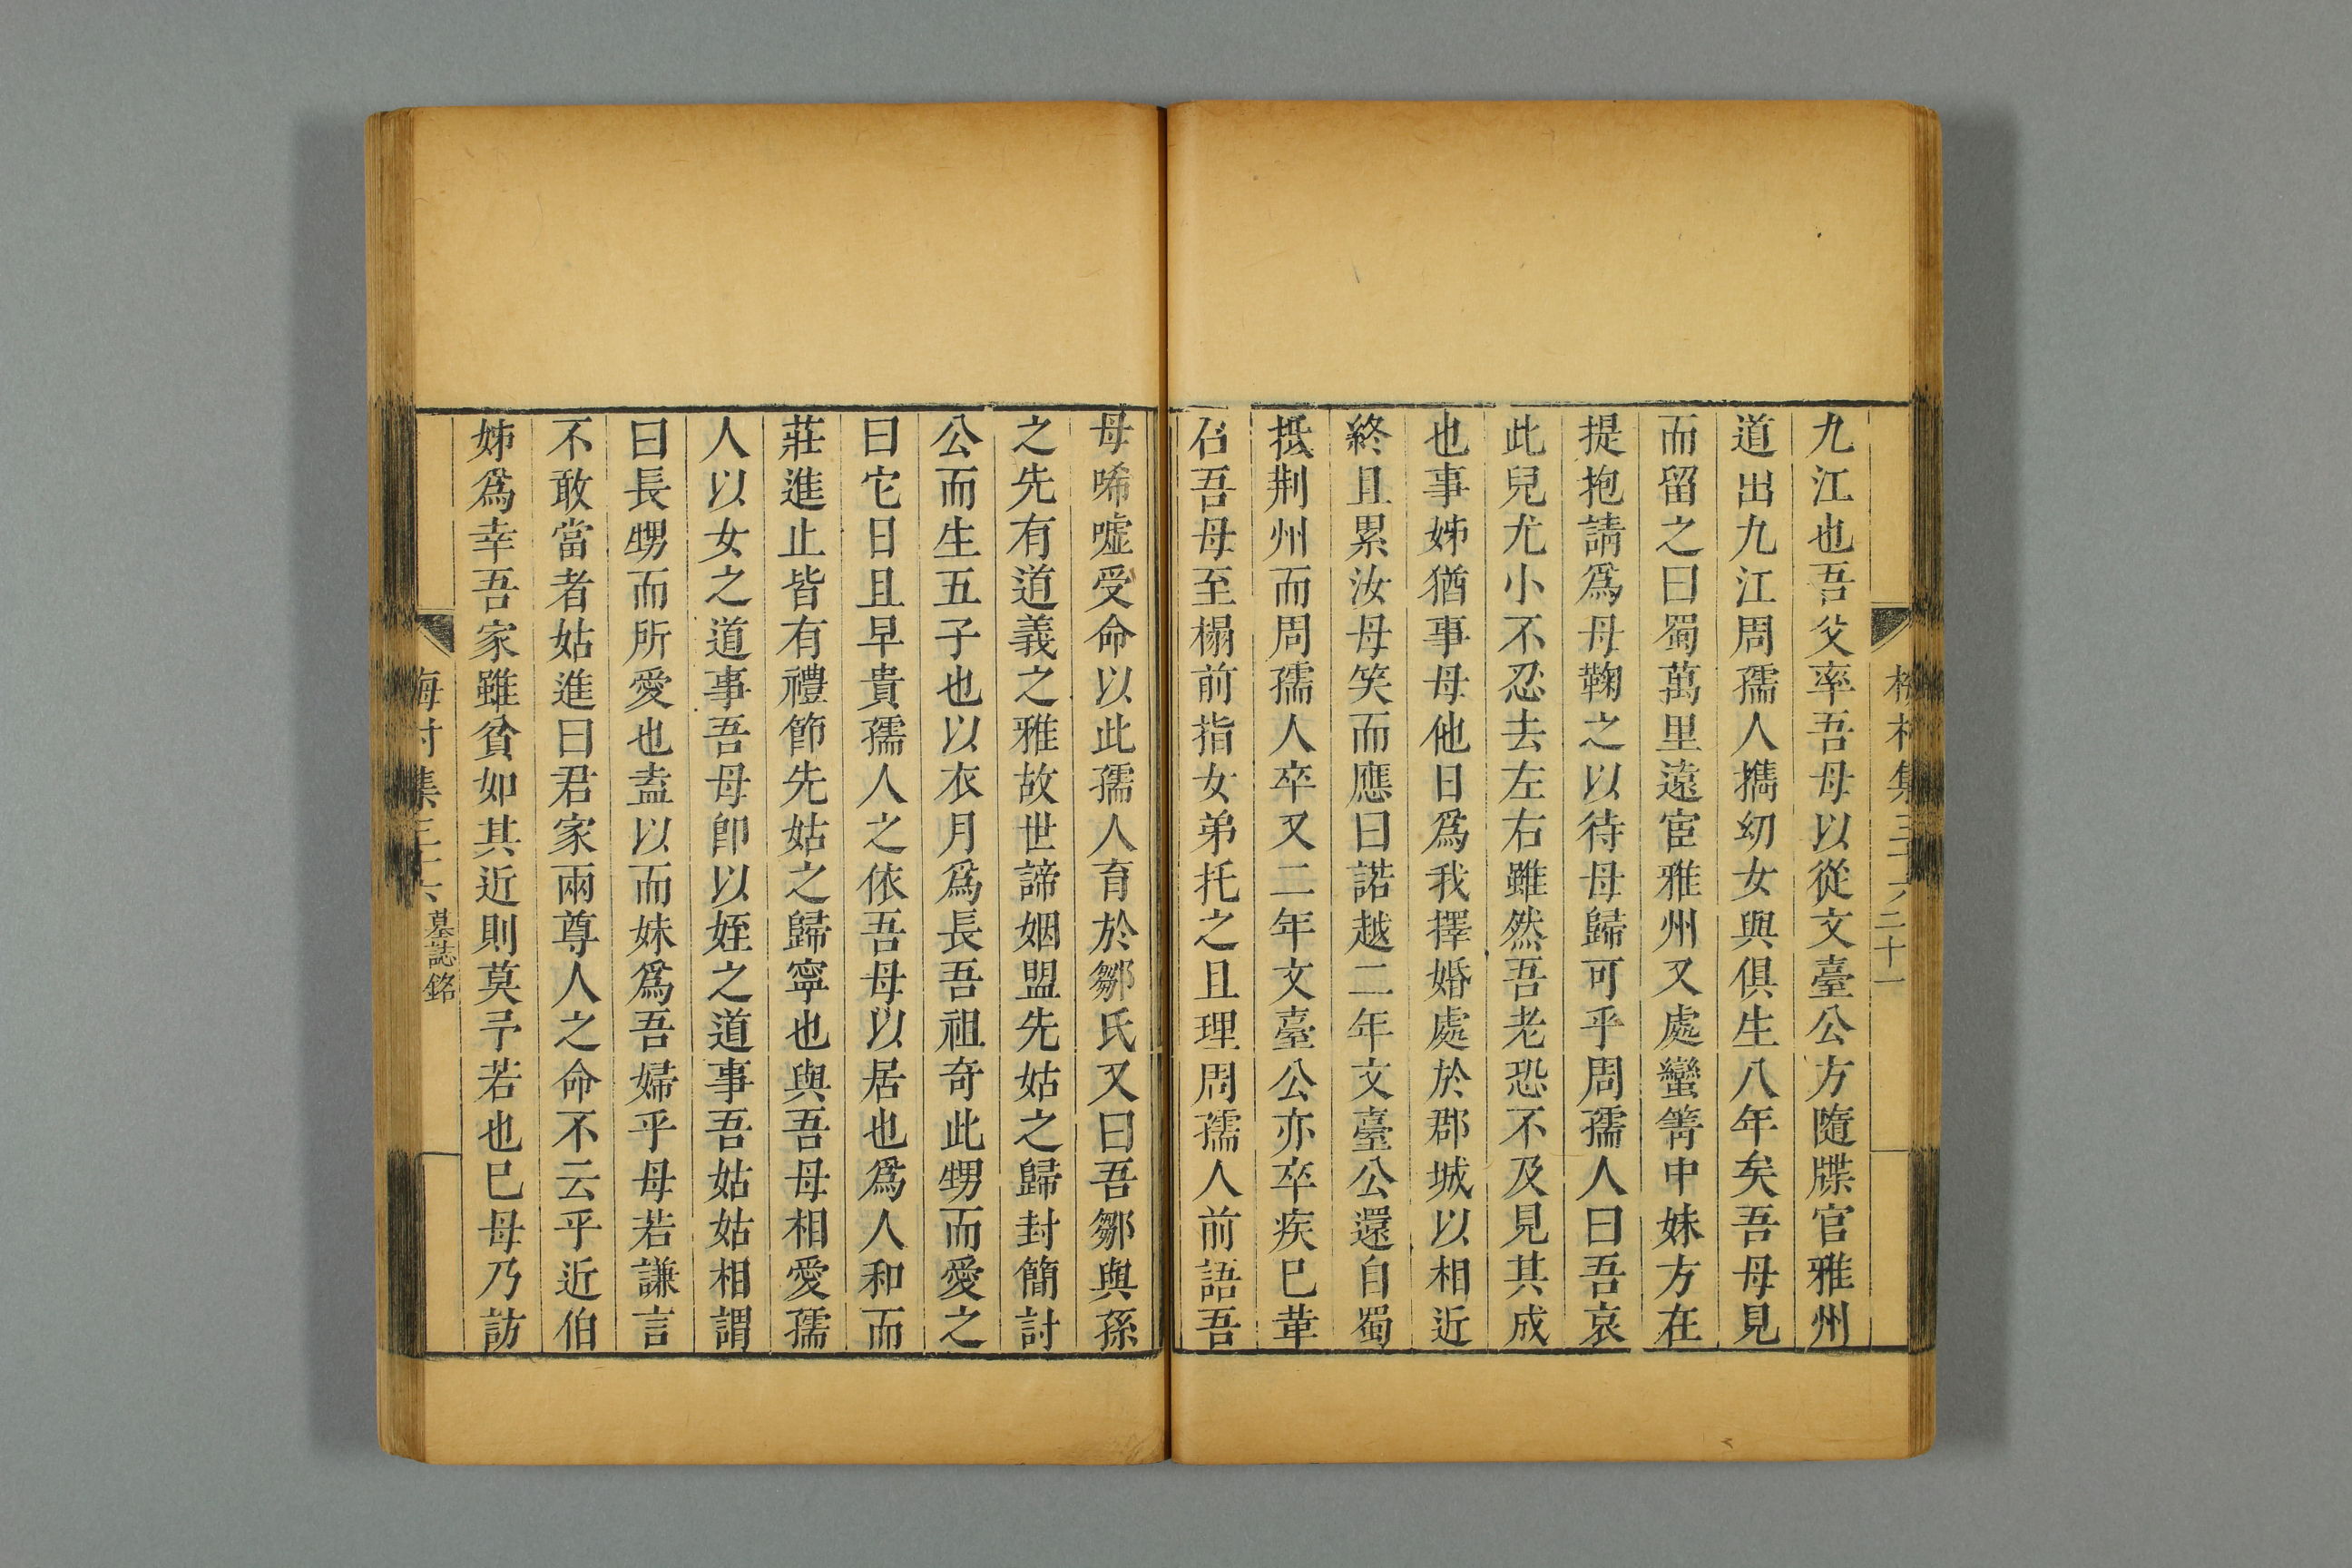 九江也吾父率吾母以從文臺公方隨牒官雅州
道出九江周孺人攜幼女與俱生八年矣吾母見
而留之曰蜀萬里遠宦雅州又處蠻箐中妹方在
提抱請爲母鞠之以待母歸可乎周孺人曰吾哀
此兒尤小不忍去左右雖然吾老恐不及見其成
也事姊猶事母他日爲我擇婚處於郡城以相近
終且累汝母笑而應曰諾越二年文臺公還自蜀
抵荆州而周孺人卒又二年文臺公亦卒疾巳革
召吾母至榻前指女弟托之且理周孺人前語吾
母唏噓受命以此孺人育於鄒氏又曰吾鄒與孫
之先有道義之雅故世諦姻盟先姑之歸封簡討
公而生五子也以衣月爲長吾祖奇此甥而愛之
曰它日且早貴孺人之依吾母以居也爲人和而
莊進止皆有禮節先姑之歸寧也與吾母相愛孺
人以女之道事吾母卽以姪之道事吾姑姑相謂
曰長甥而所愛也盍以而妹爲吾婦乎母若謙言
不敢當者姑進曰君家兩尊人之命不云乎近伯
姊爲幸吾家雖貧如其近則莫予若也巳母乃訪
集
二十一
墓誌銘